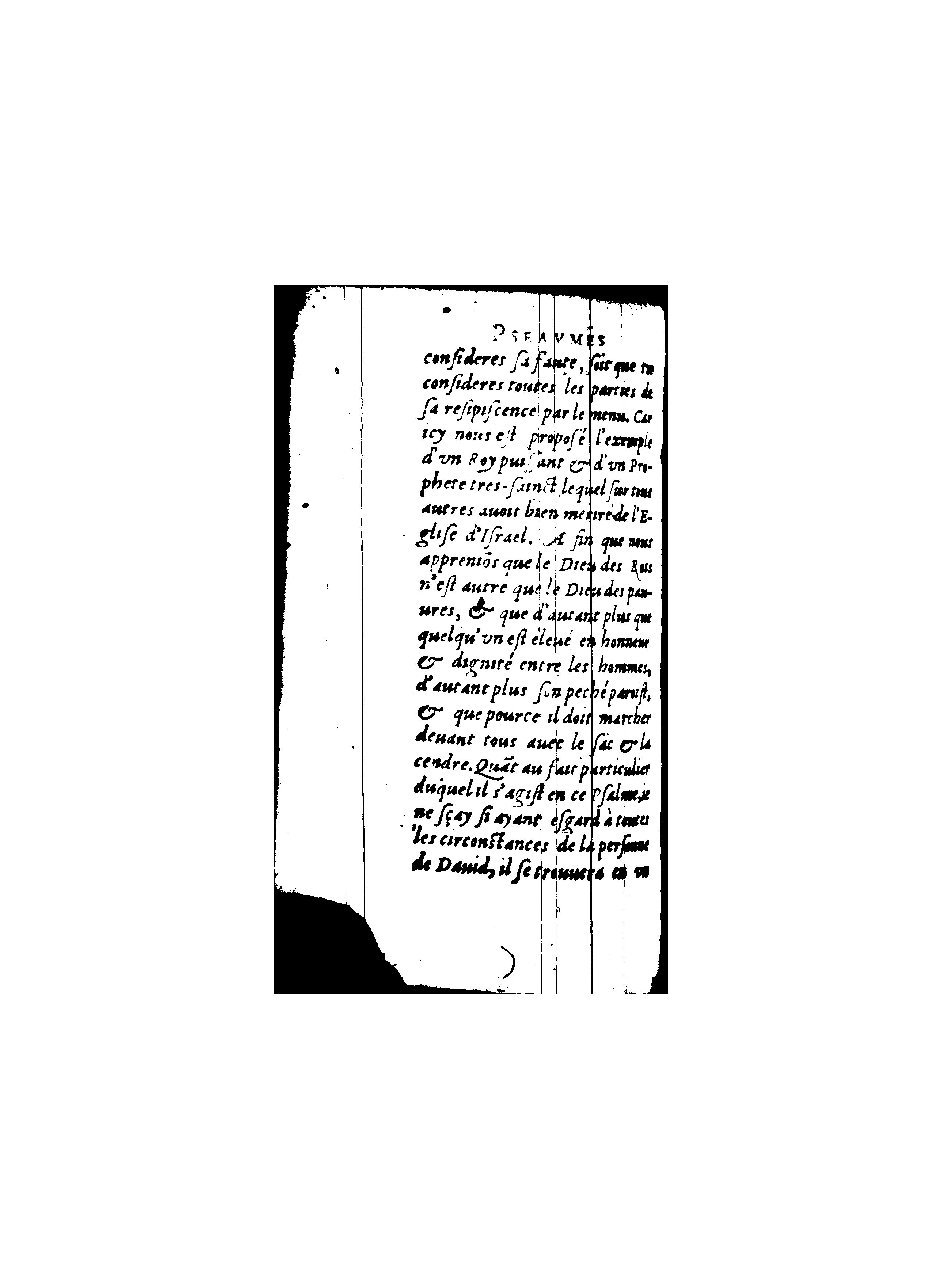 PSEAVMES
consideres sa faute, soit que tu
consideres toutes les parties de
sa resipiscence par le menu. Car
icy nous est proposé l'exemple
d'vn Roy puissant & d'vn Pro-
phete tres-sainct lequel sur tous
autres auoit bien merité de l'E-
glise d'Israel. A fin que nous
appreniõs que le Dieu des Rois
n'est autre que le Dieu des pau-
ures, & que d'autant plus que
quelqu'vn est éleué en honneur
& dignité entre les hommes,
d'autant plus son peché paroist,
& que pource il doit marcher
deuant tous auec le sac & la
cendre. Quãt au fait particulier
duquel il s'agist en ce Psalme, ie
ne sçay si ayant esgard à toutes
les circonstances de la personne
de Dauid, il se trouuera en vn